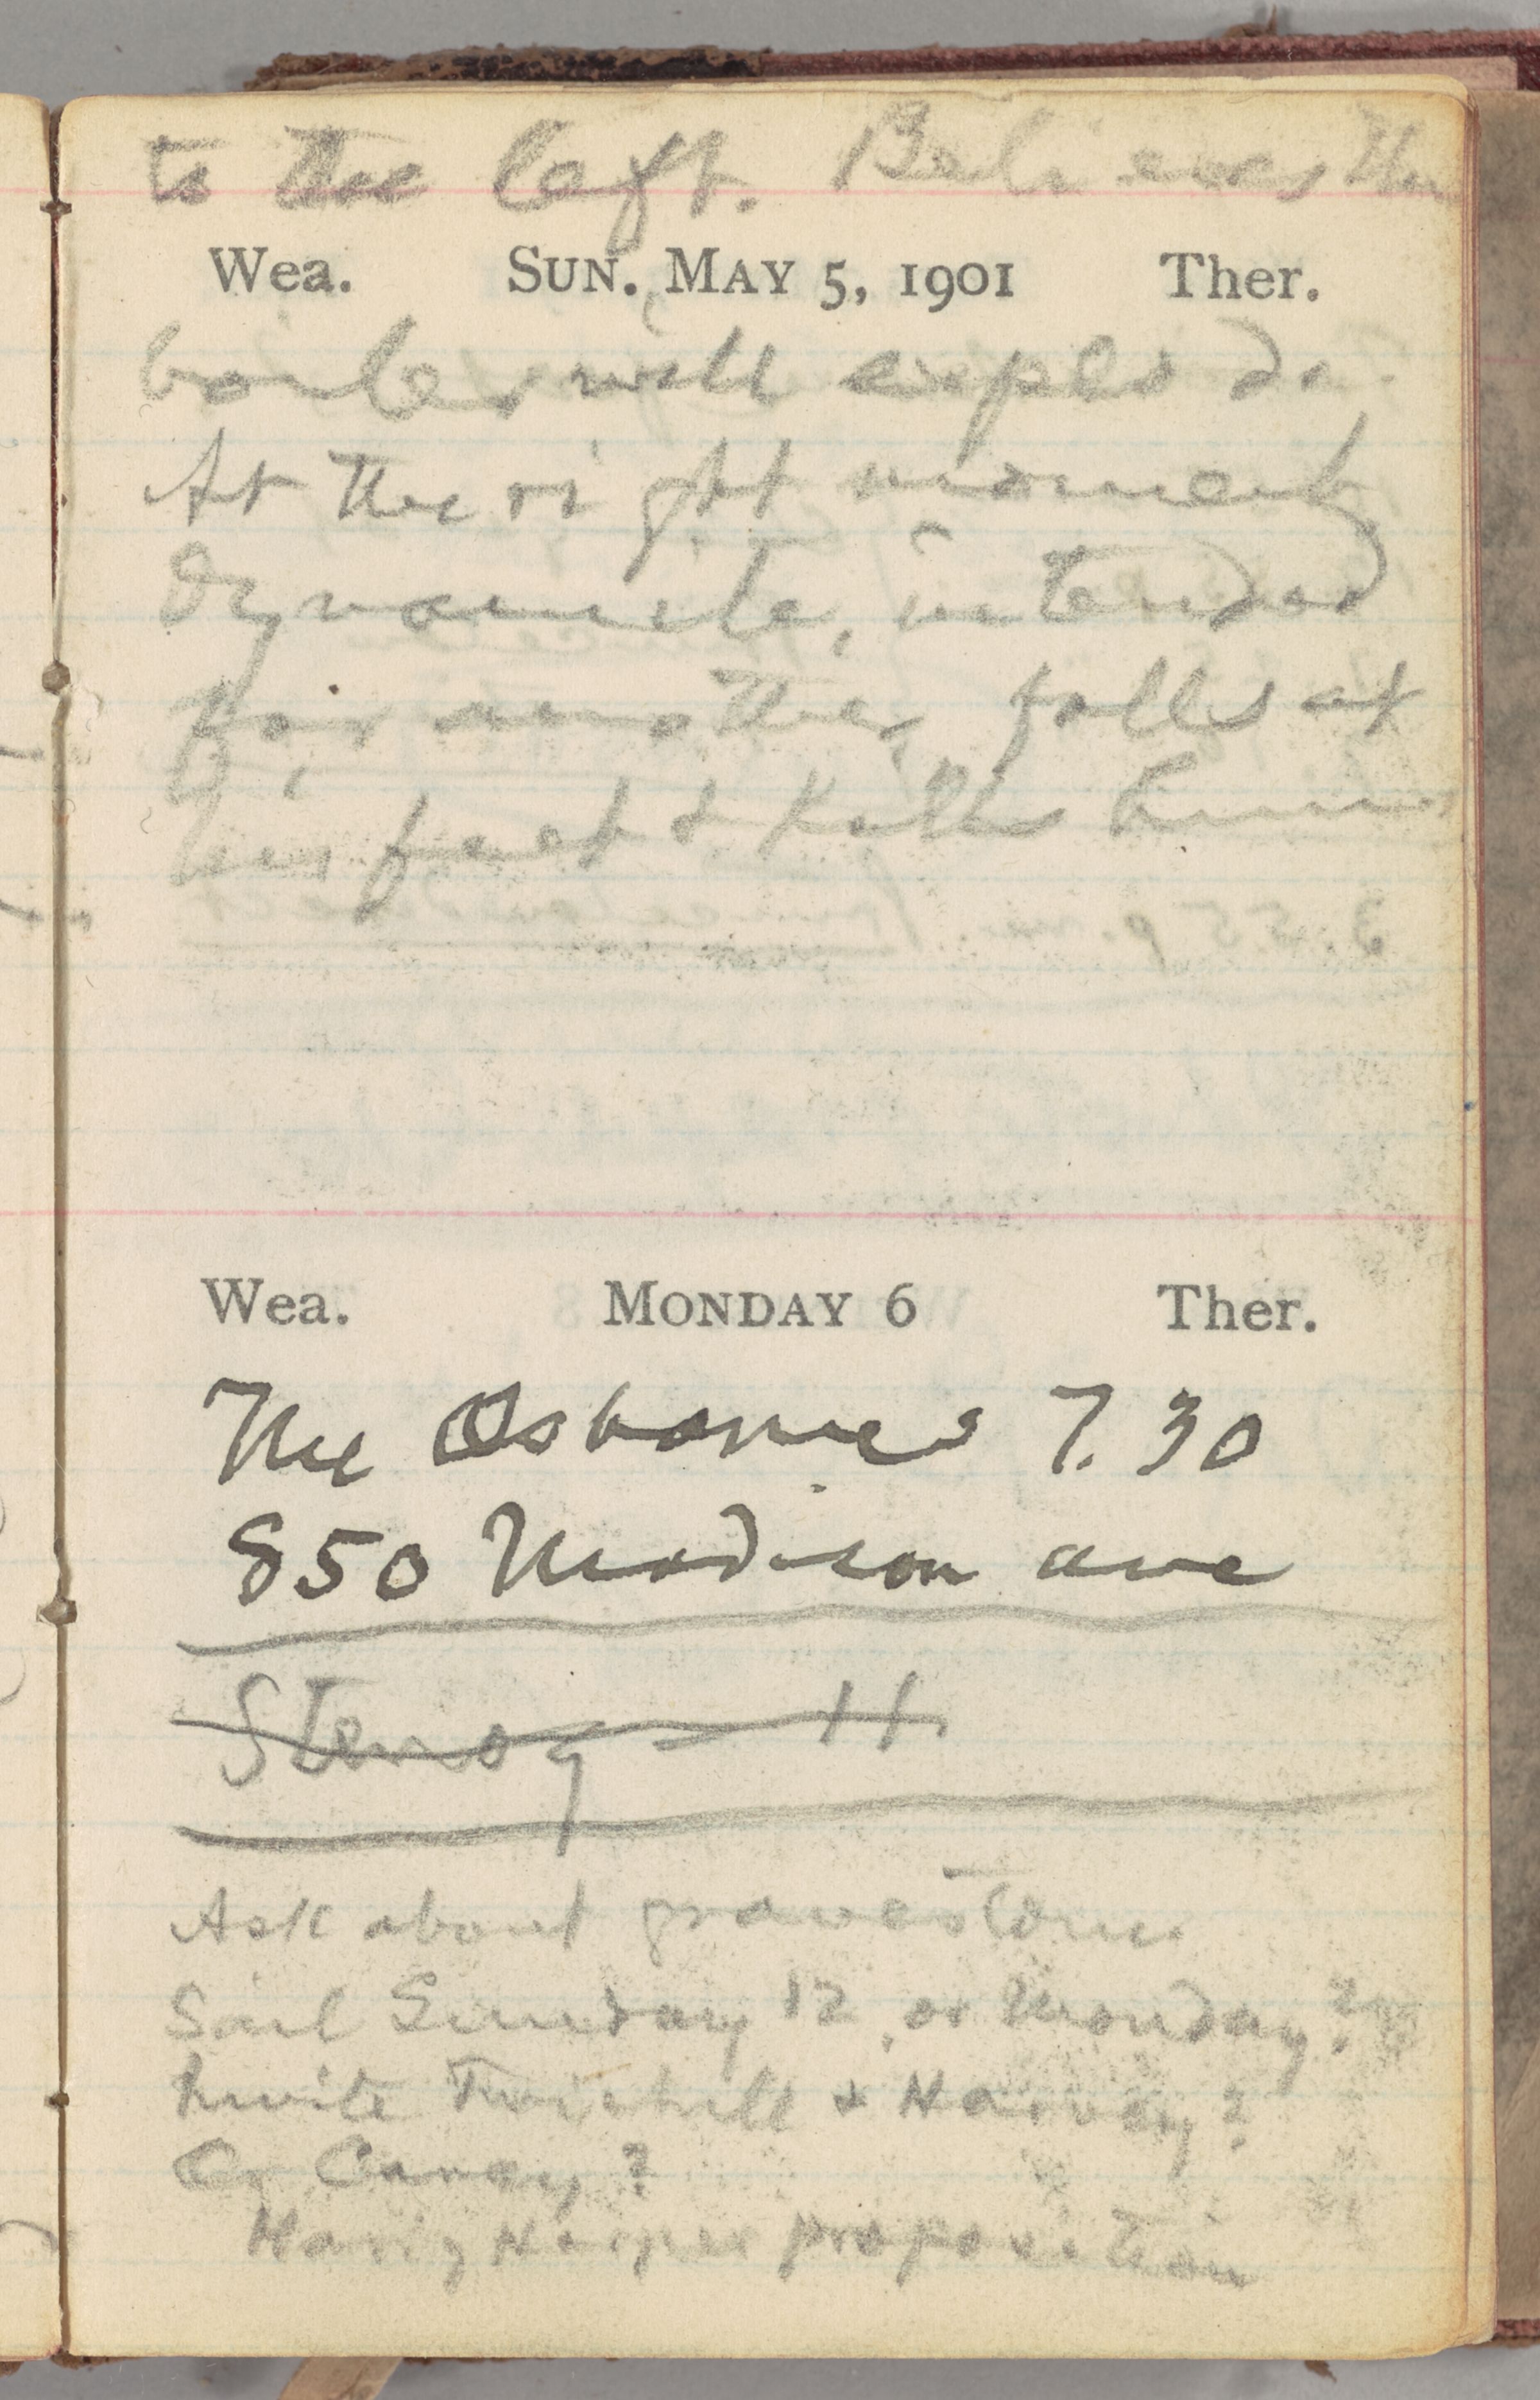 to the left. Believes the
Wea. SUN. MAY 5, 1901 Ther.
boiler will explode.
At the right moment
dynamite, intended
for another, falls at
his feet & kills him.
Wea. MONDAY 6 Ther.
The Osbornes 7.30
850 Madison ave
Stenog — H.
Ask about gravestone
Sail Sunday 12, or Monday?
Invite Twichell & Harvey?
Or Carey?
Harvey Harper proposition